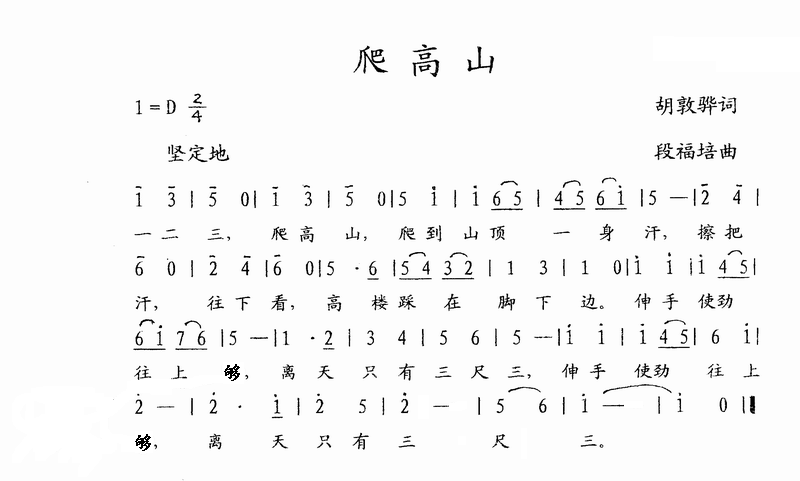 爬高山
1=D 2/4 胡敦骅词
坚定地 段福培曲
1 3 | 5 0 | 1 3 | 5 0 | 5 i | i 6 5 | 4 5 6 i | 5 — | 2 4 |
一二三，爬高山，爬到山顶一身汗，擦把
6 0 | 2 4 | 6 0 | 5 · 6 | 5 4 3 2 | 1 3 | 1 0 | i i | i 4 5 |
汗，往下看，高楼踩在脚下边。伸手使劲
6 i 7 6 | 5 — | 1 · 2 | 3 4 | 5 6 | 5 — | i i | i 4 5 | 6 i |
往上够，离天只有三尺三，伸手使劲往上
2 — | 2 · i | 2 5 | 2 — | 5 6 | i — | i 0 ‖
够，离天只有三尺三。